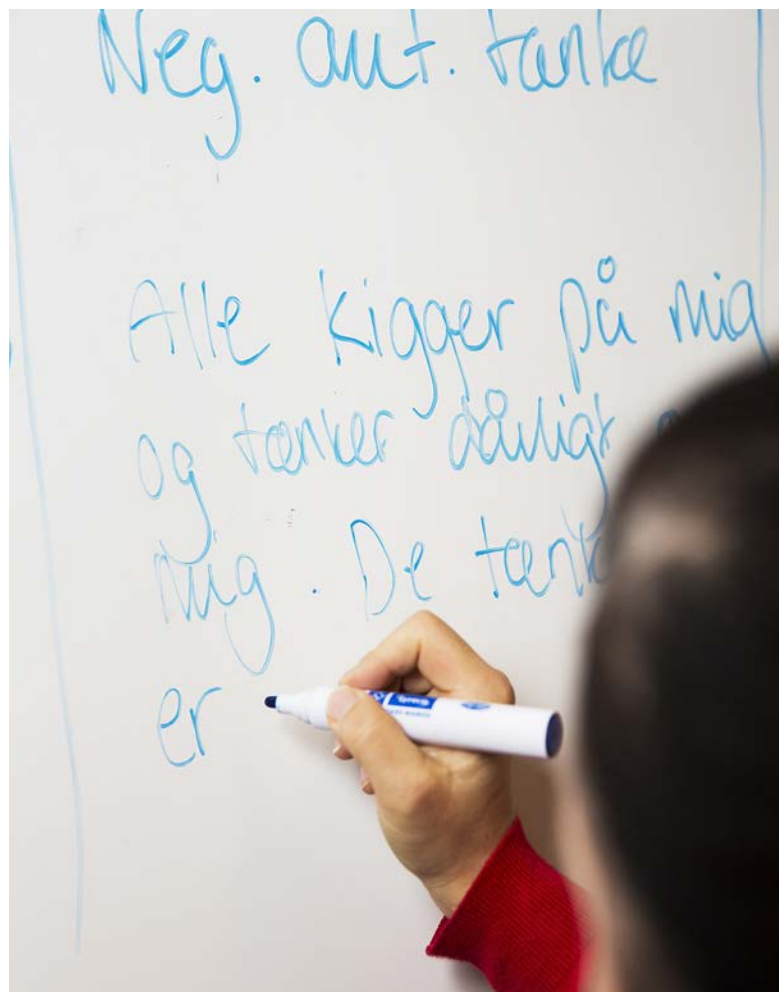 Neg. aut. tanke
Alle kigger på mig
og tænker dårligt
mig. De tænk
er